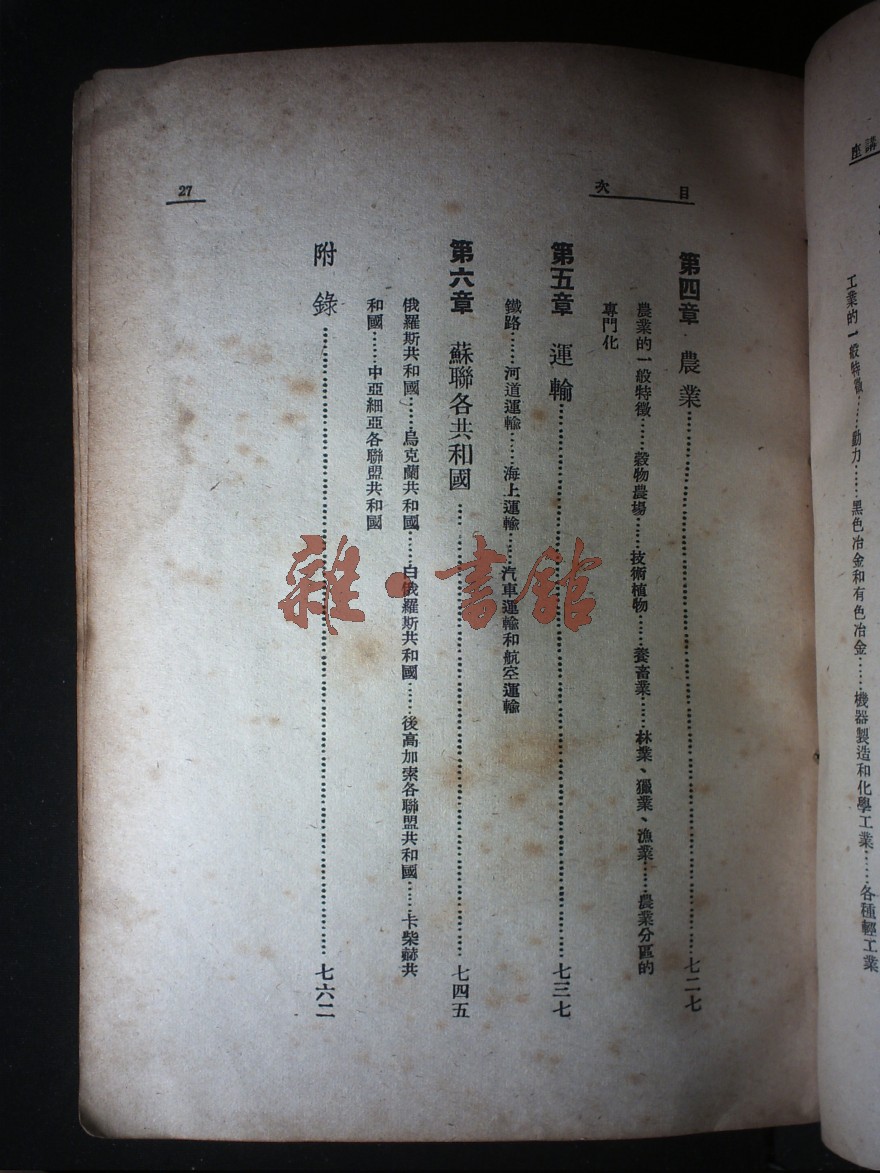 講座
工業的一般特徵……動力……黑色冶金和有色冶金……機器製造和化學工業……各種輕工業
目次
第四章 農業……七二七
農業的一般特徵……穀物農場……技術植物……養畜業……林業、獵業、漁業……農業分區的
專門化
第五章 運輸……七三七
鐵路……河道運輸……海上運輸……汽車運輸和航空運輸
第六章 蘇聯各共和國……七四五
俄羅斯共和國……烏克蘭共和國……白俄羅斯共和國……後高加索各聯盟共和國……卡柴赫共
和國……中亞細亞各聯盟共和國
附錄……七六二
27
雜·書館